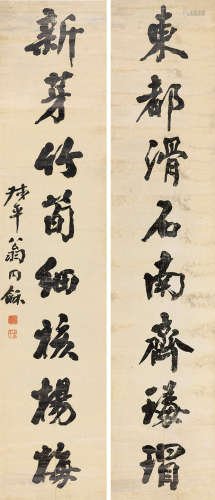 東都滑石南齊璣瑁
新芽竹筍細核楊梅
叔平翁同龢